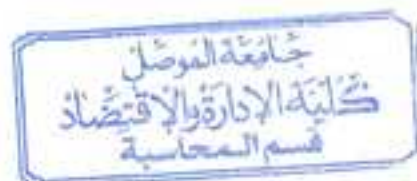 جامعة الموصل
كلية الإدارة والاقتصاد
قسم المحاسبة